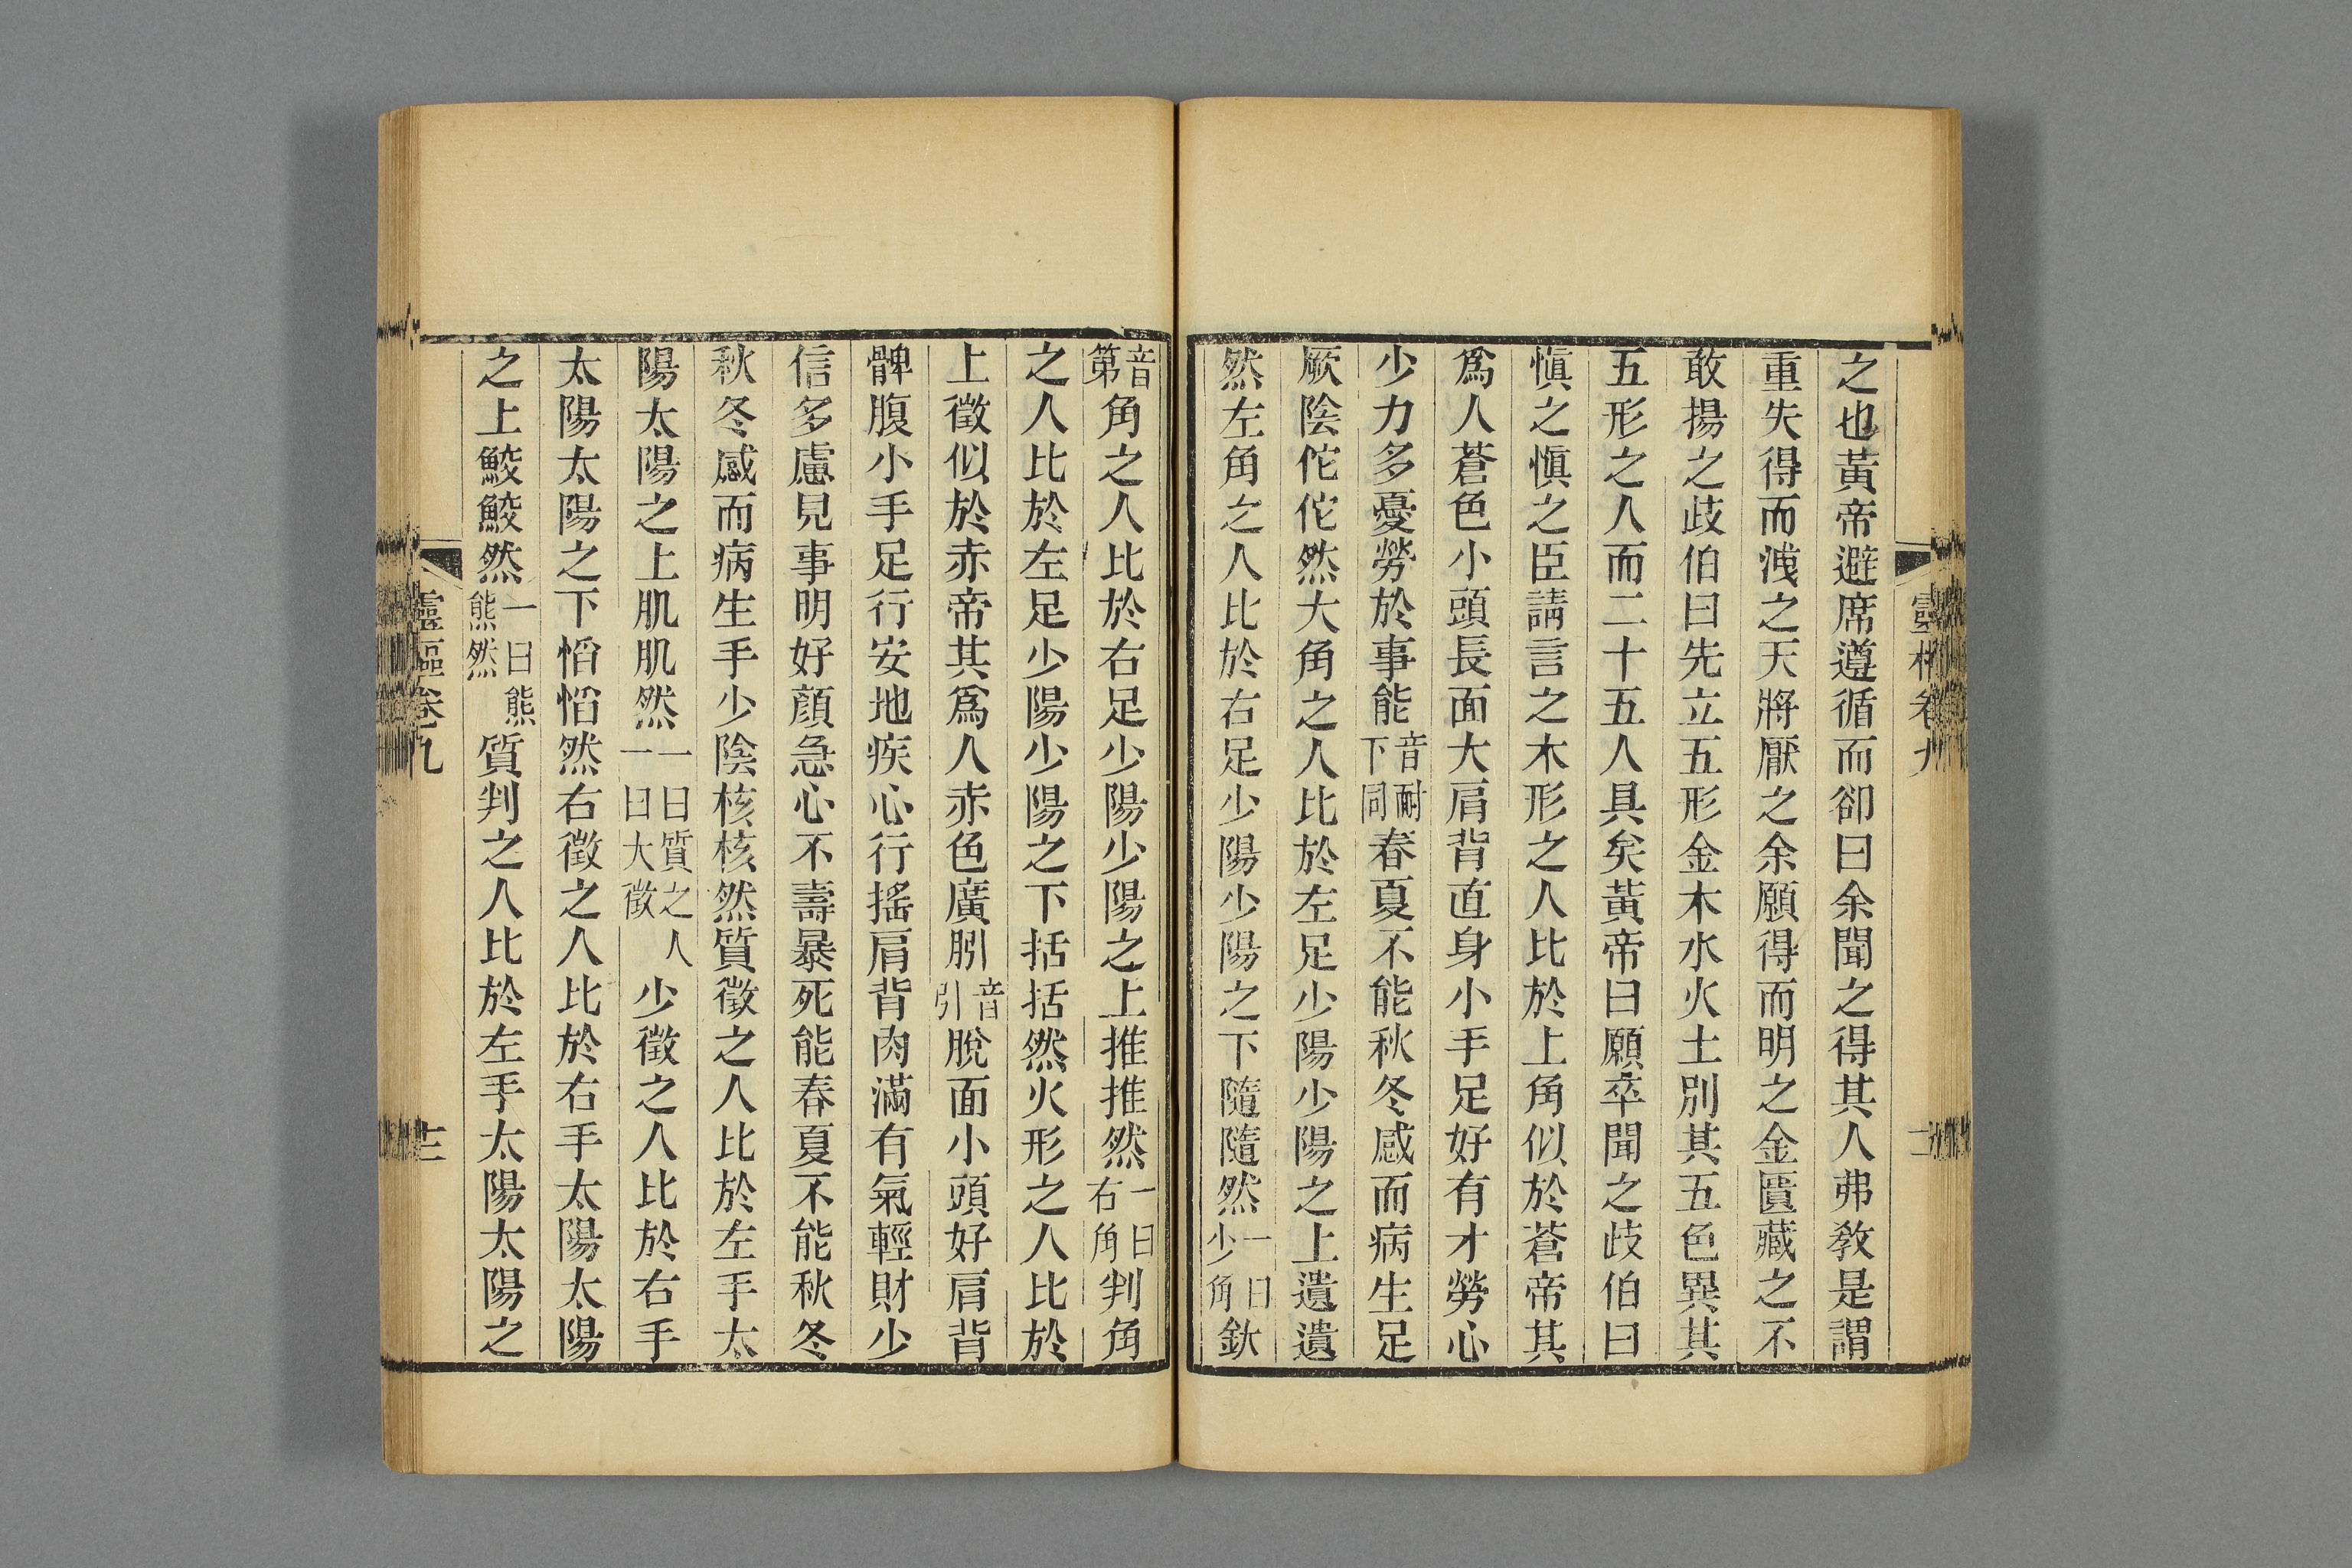 之也黃帝避席遵循而卻曰余聞之得其人弗教是謂
重失得而洩之天將厭之余願得而明之金匱藏之不
敢揚之歧伯曰先立五形金木水火土別其五色異其
五形之人而二十五人具矣黃帝曰願卒聞之歧伯曰
愼之愼之臣請言之木形之人比於上角似於蒼帝其
爲人蒼色小頭長面大肩背直身小手足好有才勞心
少力多憂勞於事能音耐下同春夏不能秋冬感而病生足
厥陰佗佗然大角之人比於左足少陽少陽之上遺遺
然左角之人比於右足少陽少陽之下隨隨然一曰少角釱
音第角之人比於右足少陽少陽之上推推然一曰右角判角
之人比於左足少陽少陽之下括括然火形之人比於
上徵似於赤帝其爲人赤色廣䏖音引脫面小頭好肩背
髀腹小手足行安地疾心行搖肩背肉滿有氣輕財少
信多慮見事明好顏急心不壽暴死能春夏不能秋冬
秋冬感而病生手少陰核核然質徵之人比於左手太
陽太陽之上肌肌然一曰質之人一曰大徵少徵之人比於右手
太陽太陽之下慆慆然右徵之人比於右手太陽太陽
之上鮫鮫然一曰熊熊然質判之人比於左手太陽太陽之
靈樞卷九